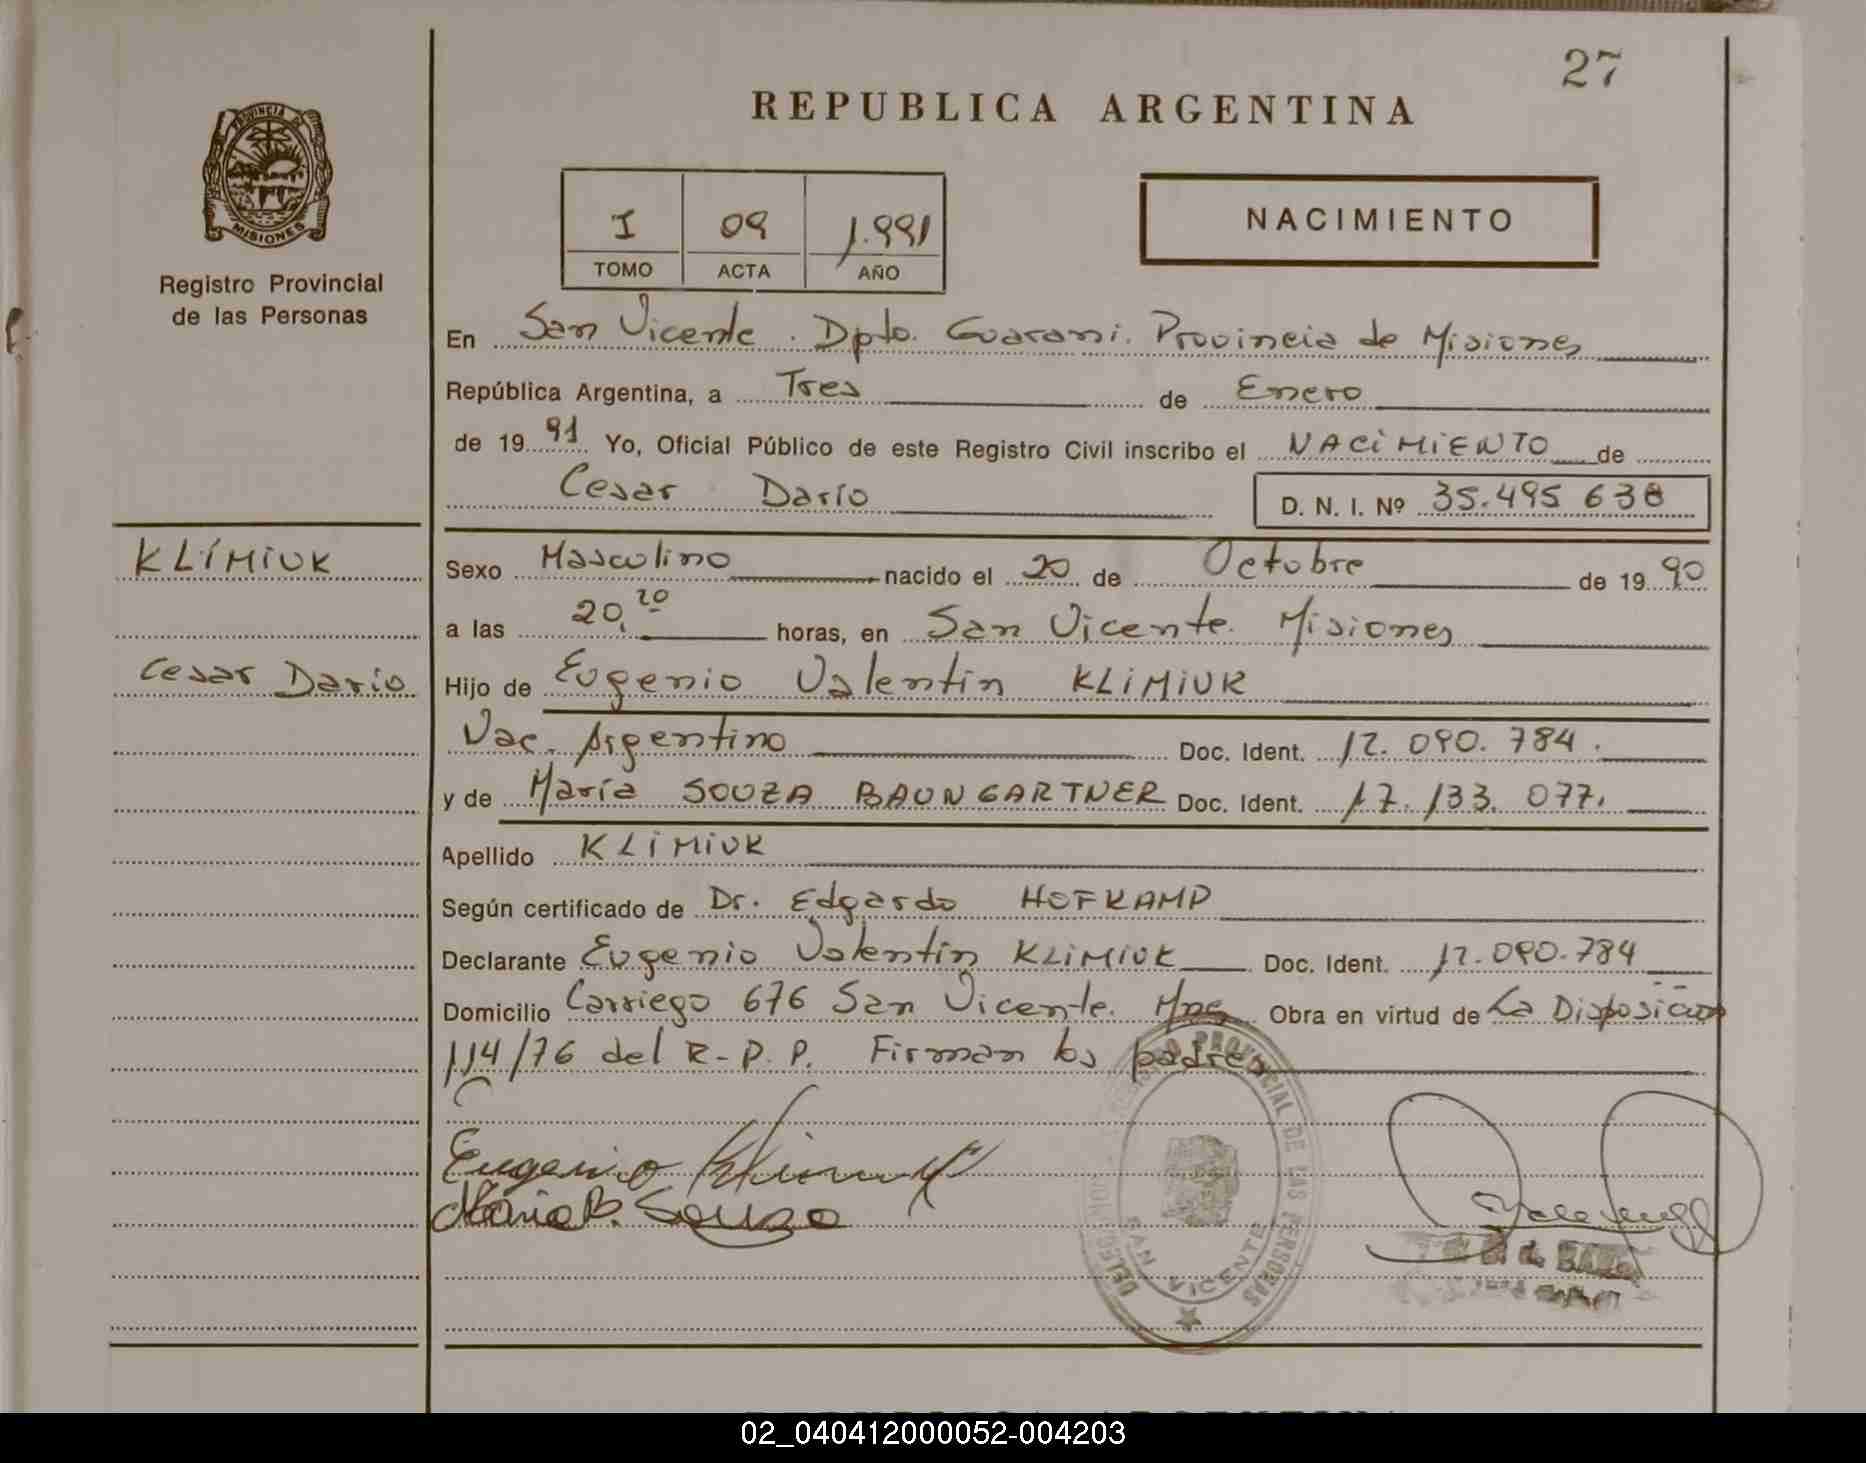 27
REPUBLICA ARGENTINA
PROVINCIA DE
MISIONES
Registro Provincial
de las Personas
I 09 1.991
TOMO ACTA AÑO
NACIMIENTO
En San Vicente. Dpto. Guarani. Provincia de Misiones
República Argentina, a Tres de Enero
de 1991 Yo, Oficial Público de este Registro Civil inscribo el NACIMIENTO de
Cesar Darío D. N. I. Nº 35.495 638
KLIMIUK
Cesar Darío
Sexo Masculino nacido el 20 de Octubre de 1990
a las 20,20 horas, en San Vicente. Misiones
Hijo de Eugenio Valentin KLIMIUK
Nac. Argentino Doc. Ident. 12.090.784.
y de María SOUZA BAUNGARTNER Doc. Ident. 17.133.077.
Apellido KLIMIUK
Según certificado de Dr. Edgardo HOFKAMP
Declarante Eugenio Valentín KLIMIUK Doc. Ident. 12.090.784
Domicilio Carriego 676 San Vicente. Mnes Obra en virtud de La Disposicion
114/76 del R-P.P. Firman los padres
Eugenio Klimiuk
Maria B. Souza
REGISTRO PROVINCIAL DE LAS PERSONAS
SAN VICENTE
02_040412000052-004203